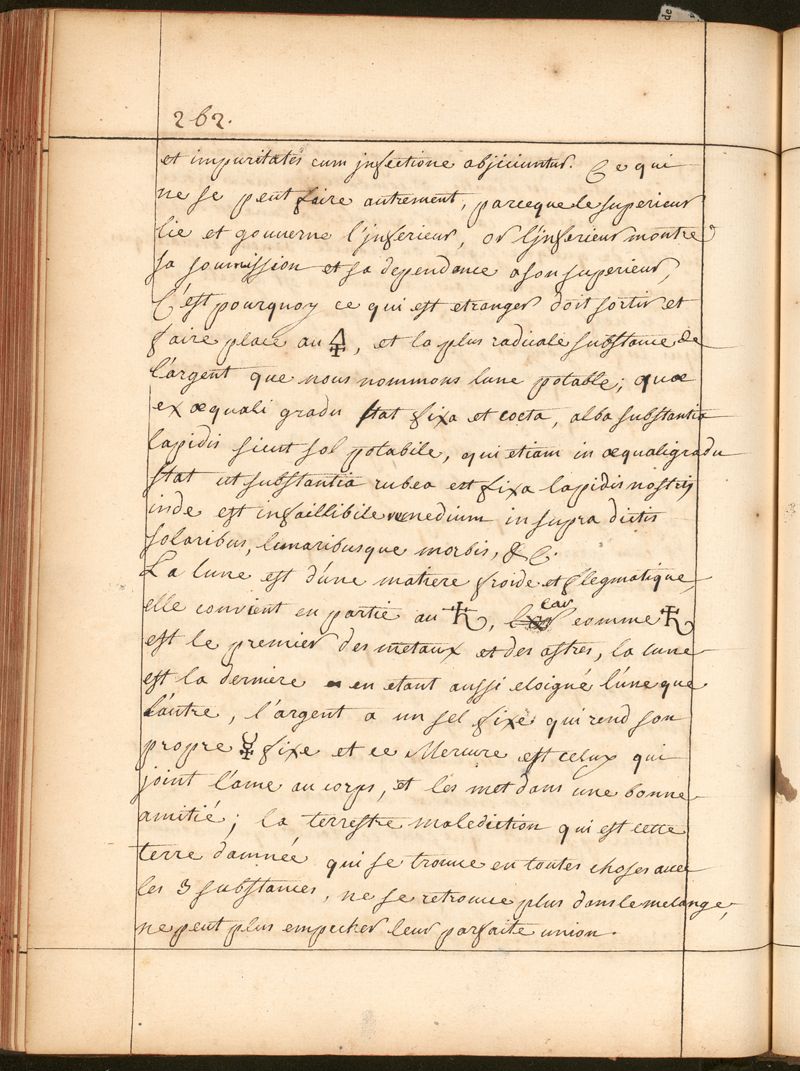 262.
et impuritates cum jnfectione abjiciuntur. Ce qui
ne se peut faire autrement, parceque le superieur
lie et gouverne l'jnferieur, or l'jnferieur montre
sa soumission et sa dependance a son superieur,
C'est pourquoy ce qui est etranger doit sortir et
faire place au 🜍, et la plus radicale substance de
l'argent que nous nommons lune potable; quæ
ex æquali gradu stat fixa et cocta, alba substantia
lapidis sicut sol potabile, qui etiam in æquali gradu
stat ut substantia rubea est fixa lapidis nostrij
inde est infaillibile remedium in supra dictis
solaribus, lunaribusque morbis, &c.
La lune est d'une matiere froide et flegmatique,
elle convient en partie au ♄, car comme ♄
est le premier des metaux et des astres, la lune
est la derniere en etant aussi eloigné l'une que
l'autre, l'argent a un sel fixe qui rend son
propre ☿ fixe et ce Mercure est celuy qui
joint l'ame au corps, et les met dans une bonne
amitié; la terrestre malediction qui est cette
terre damnée qui se trouve en toutes choses avec
les 3 substances, ne se retrouve plus dans le melange,
ne peut plus empecher leur parfaite union.